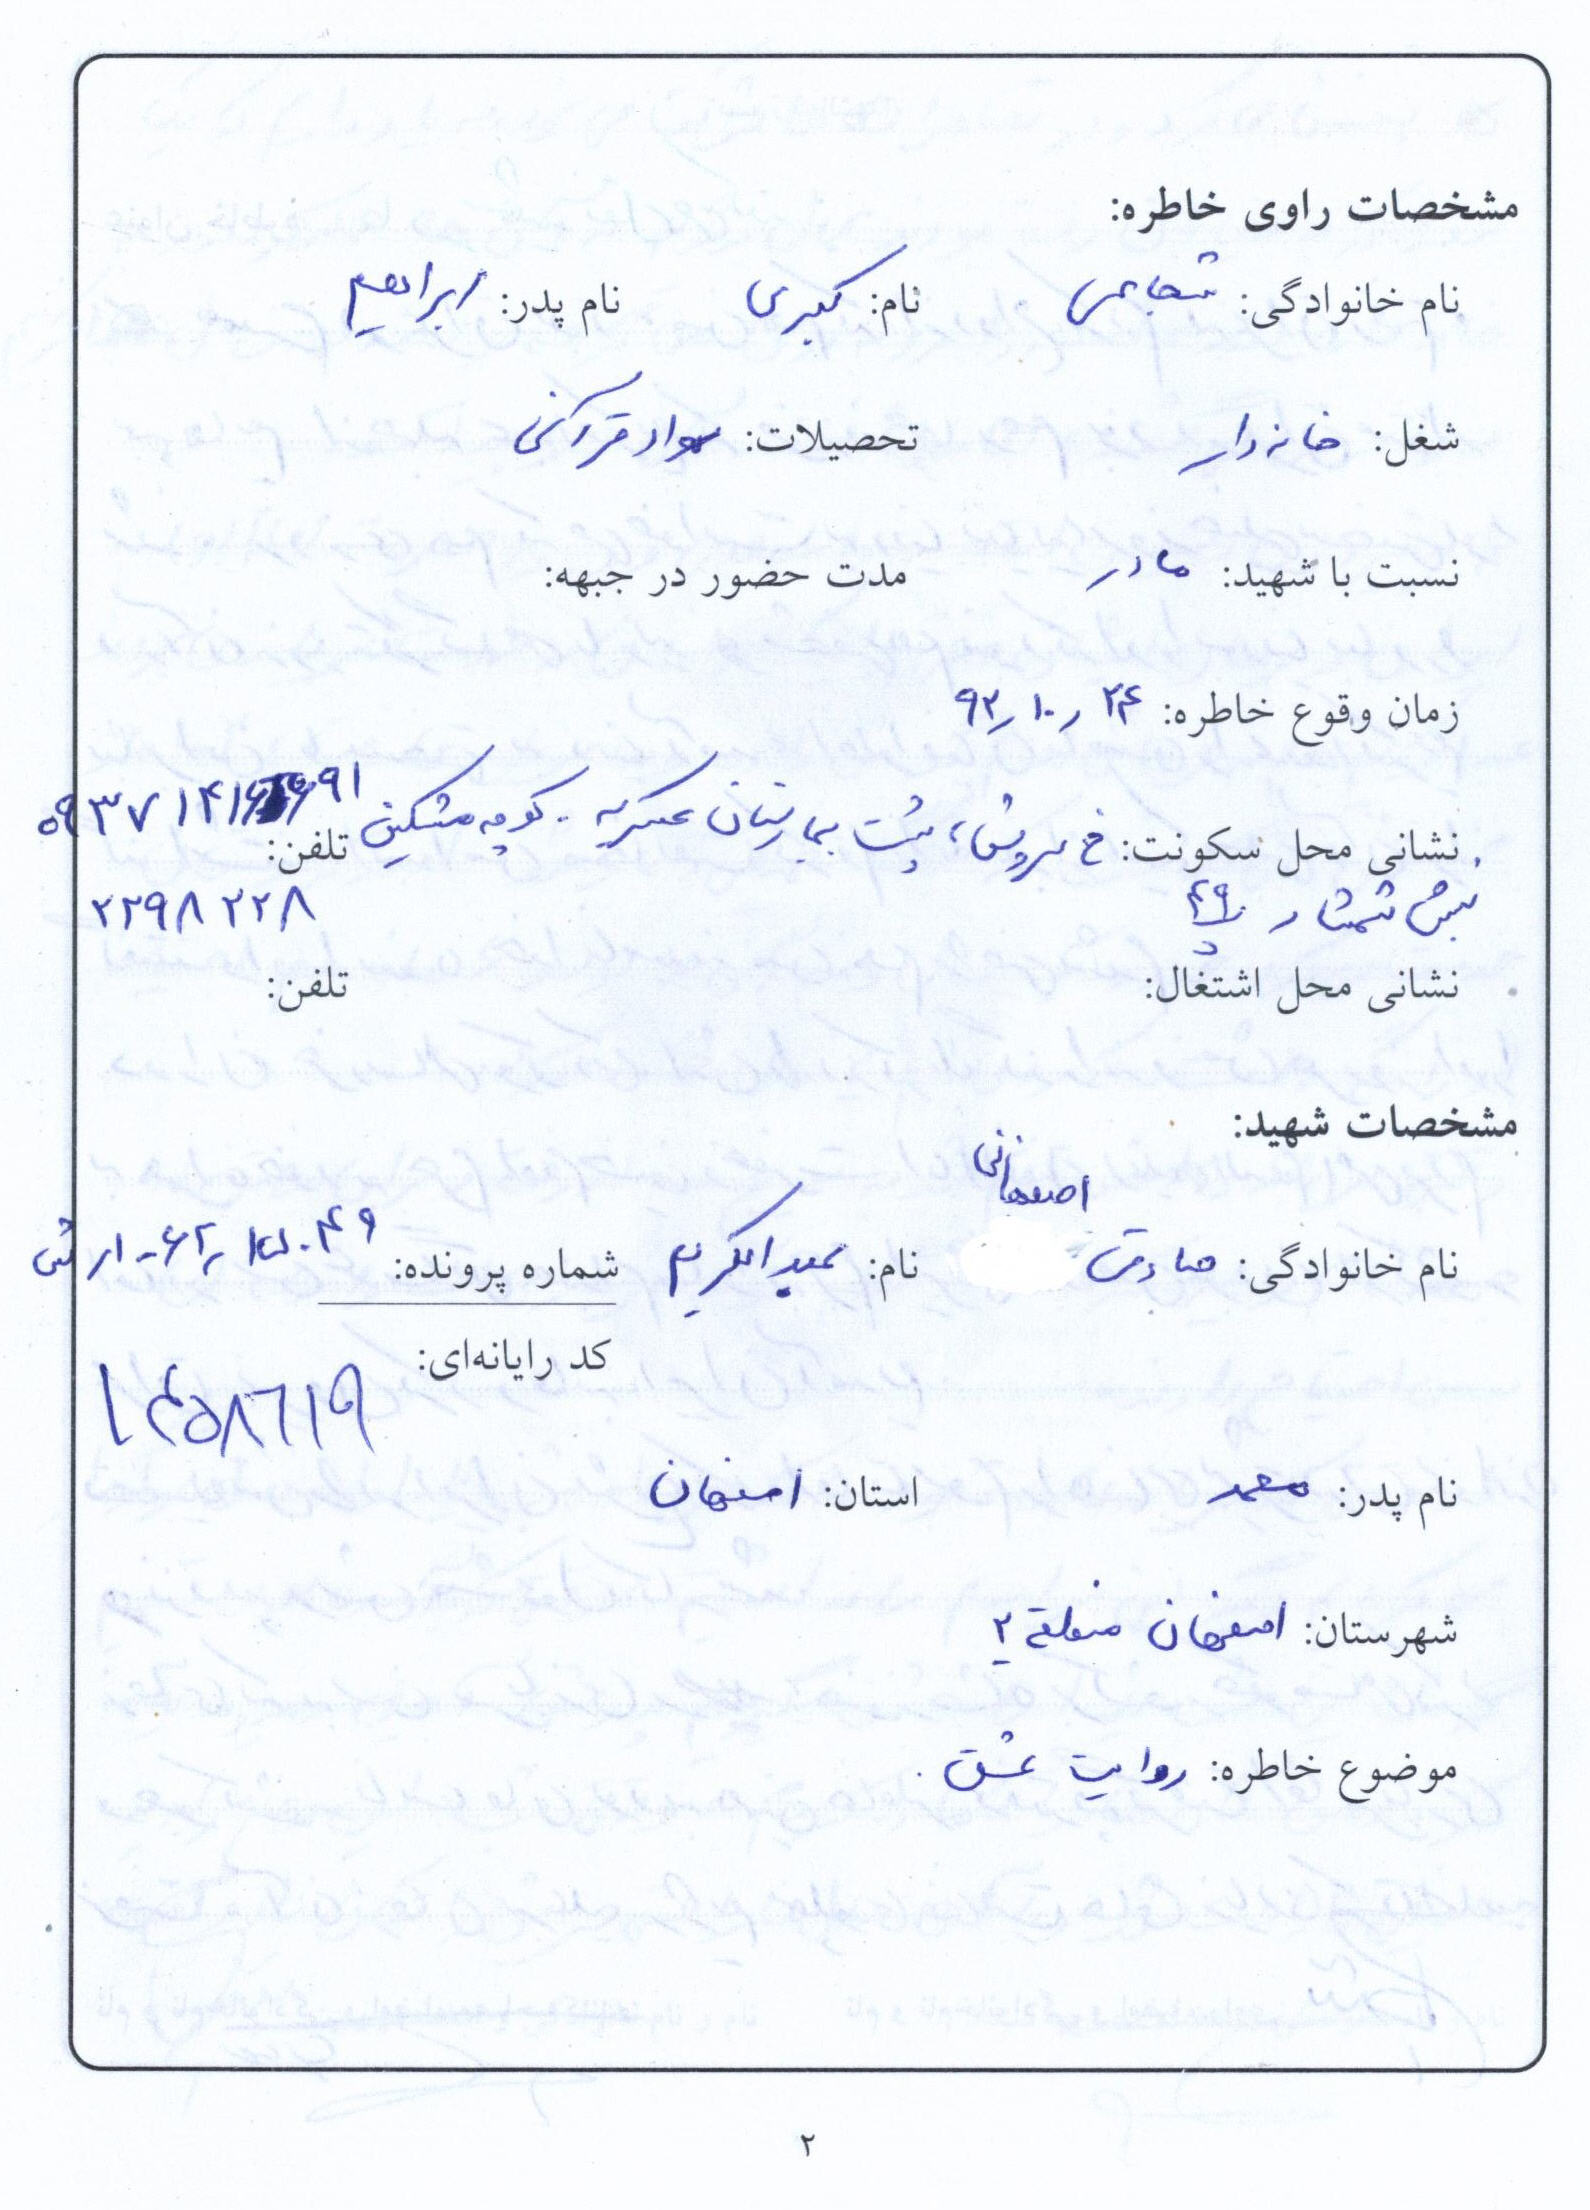 مشخصات راوی خاطره:
نام خانوادگی: شجاعی نام: کبری نام پدر: ابراهیم
شغل: خانه دار تحصیلات: سواد قرآنی
نسبت با شهید: مادر مدت حضور در جبهه:
زمان وقوع خاطره: ۹۲٫۱۰٫۲۴
نشانی محل سکونت: خ سروش، پشت بیمارستان عسکریه. کوچه مشکین تلفن:
نبش شمشاد پ ۴۹ ۲۲۹۸۲۲۸
نشانی محل اشتغال: تلفن:
مشخصات شهید:
نام خانوادگی: صادقی اصفهانی نام: عبدالکریم شماره پرونده:
کد رایانه‌ای: ۱۴۵۸۶۱۹
نام پدر: محمد استان: اصفهان
شهرستان: اصفهان منطقه ۲
موضوع خاطره: روایت عشق.
۲